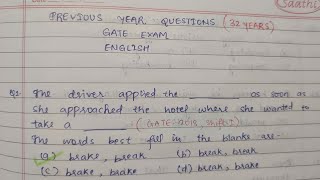 Saathi
PREVIOUS YEAR QUESTIONS (32 YEARS)
GATE EXAM
ENGLISH
Q1. The driver applied the as soon as
she approached the hotel where she wanted to
take a ________. (GATE-2018, SHIFT-1)
The words best fill in the blanks are-
(a) brake, break (b) break, break
(c) brake, brake (d) break, brake